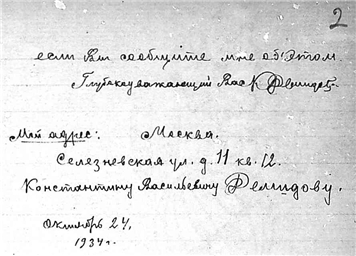 2
если Вы сообщите мне об'этом.
Глубокоуважающий Вас К Демидов.
Мой адрес: Москва.
Селезневская ул. д. 11 кв. 12.
Константину Васильевичу Демидову.
Октябрь 24,
1934 г.